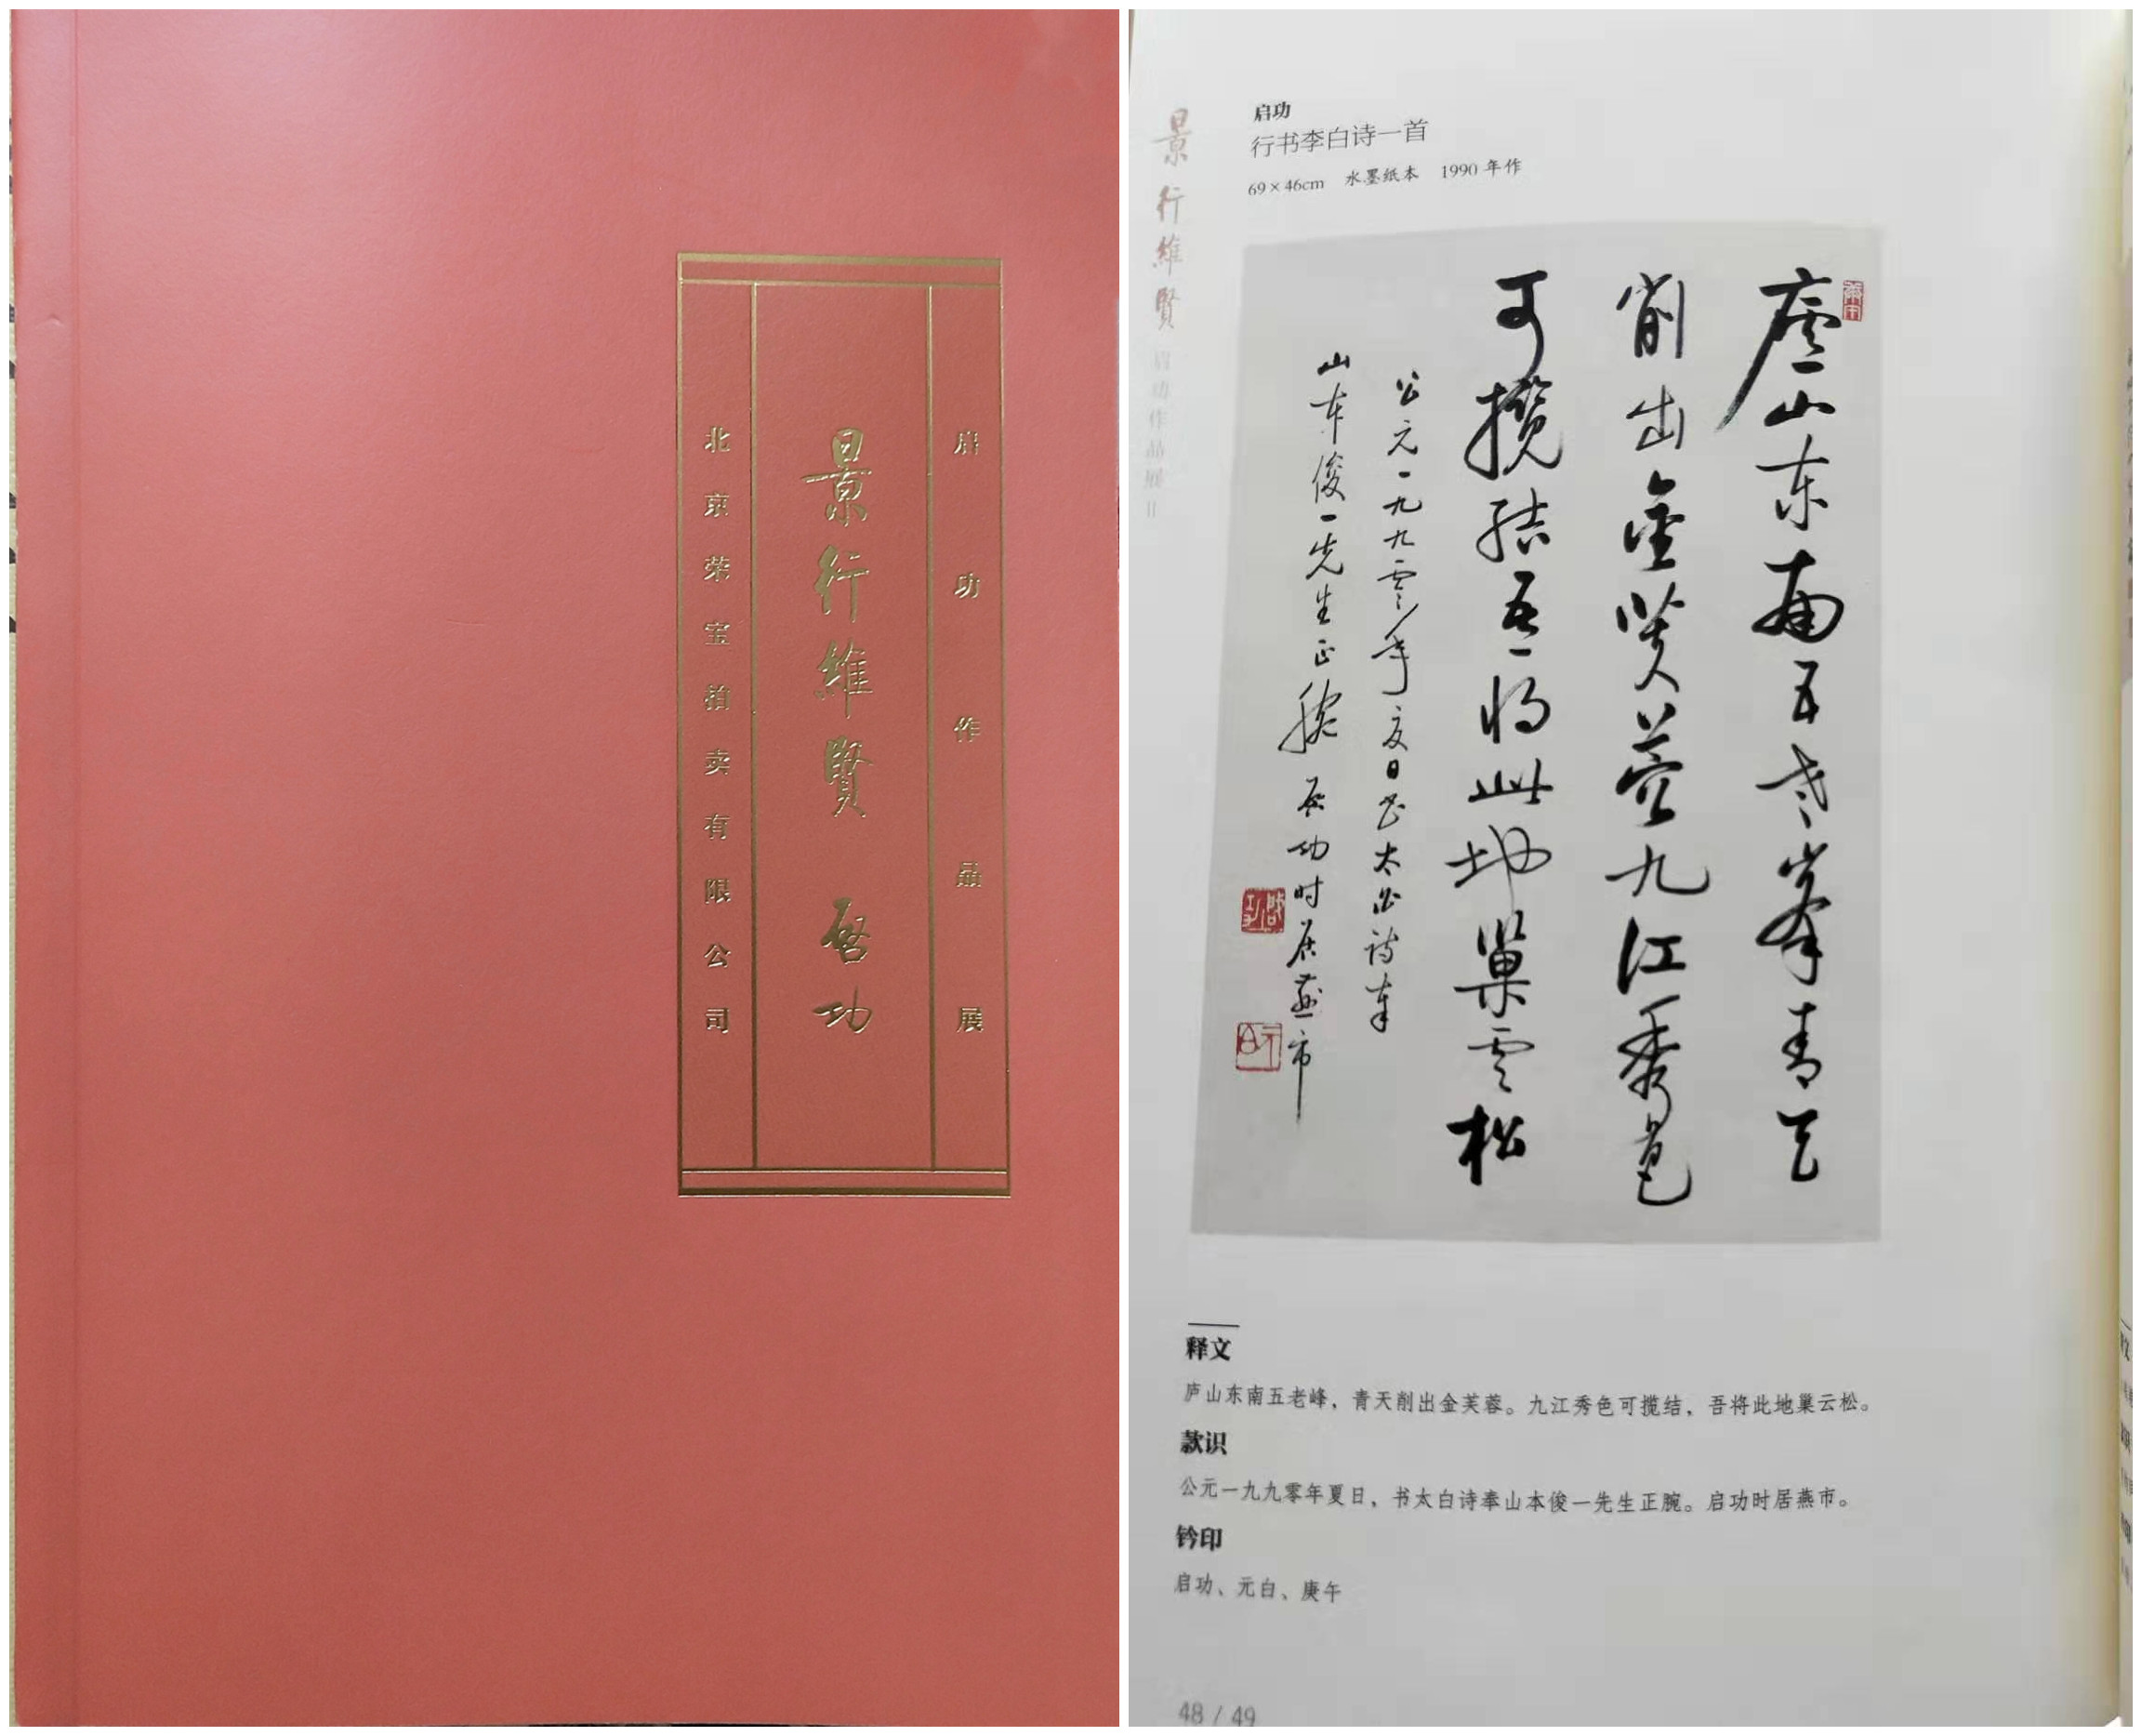 启功作品展
景行維賢 啓功
北京荣宝拍卖有限公司
景行維賢
启功作品展 II
启功
行书李白诗一首
69×46cm 水墨纸本 1990 年作
庐山东南五老峯青天
削出金芙蓉九江秀色
可揽结吾将此地巢云松
公元一九九零年夏日书太白诗奉
山本俊一先生正腕 启功时居燕市
启功
元白
庚午
释文
庐山东南五老峰，青天削出金芙蓉。九江秀色可揽结，吾将此地巢云松。
款识
公元一九九零年夏日，书太白诗奉山本俊一先生正腕。启功时居燕市。
钤印
启功、元白、庚午
48 / 49